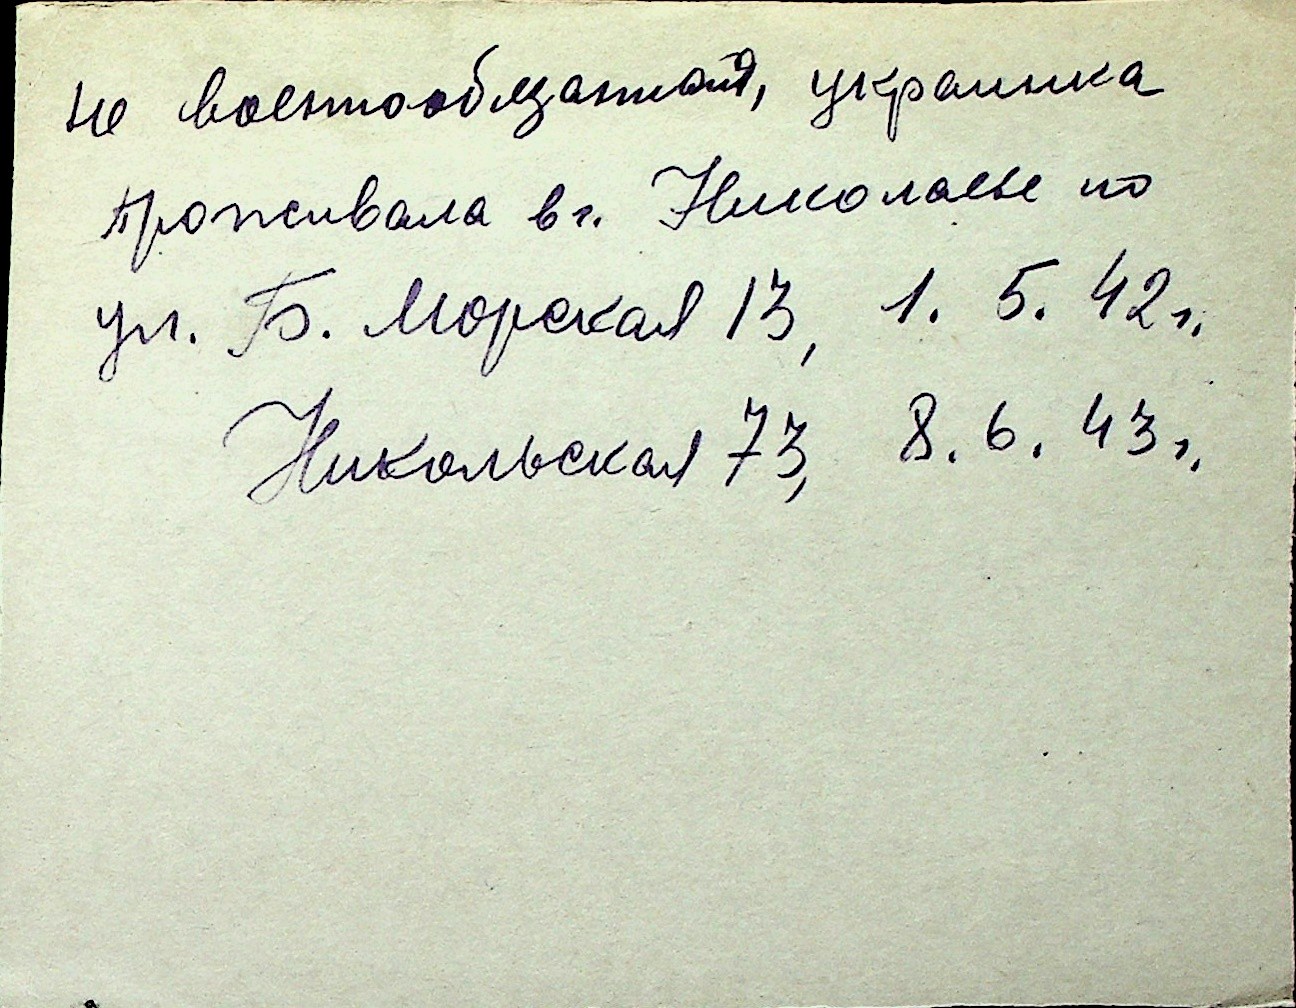 не военнообязанная, украинка
проживала в г. Николаеве по
ул. Б. Морская 13, 1. 5. 42 г.
Никольская 73, 8. 6. 43 г.